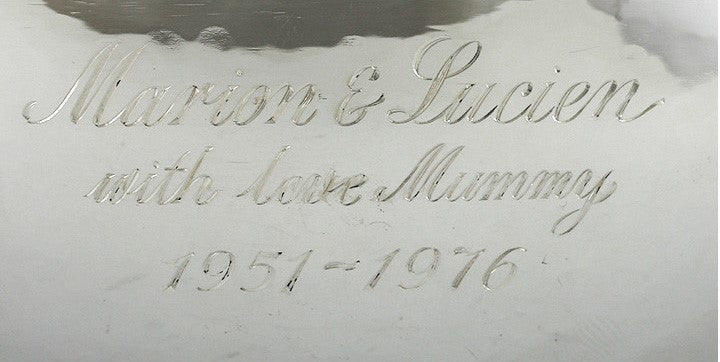 Marion & Lucien
with love Mummy
1951-1976